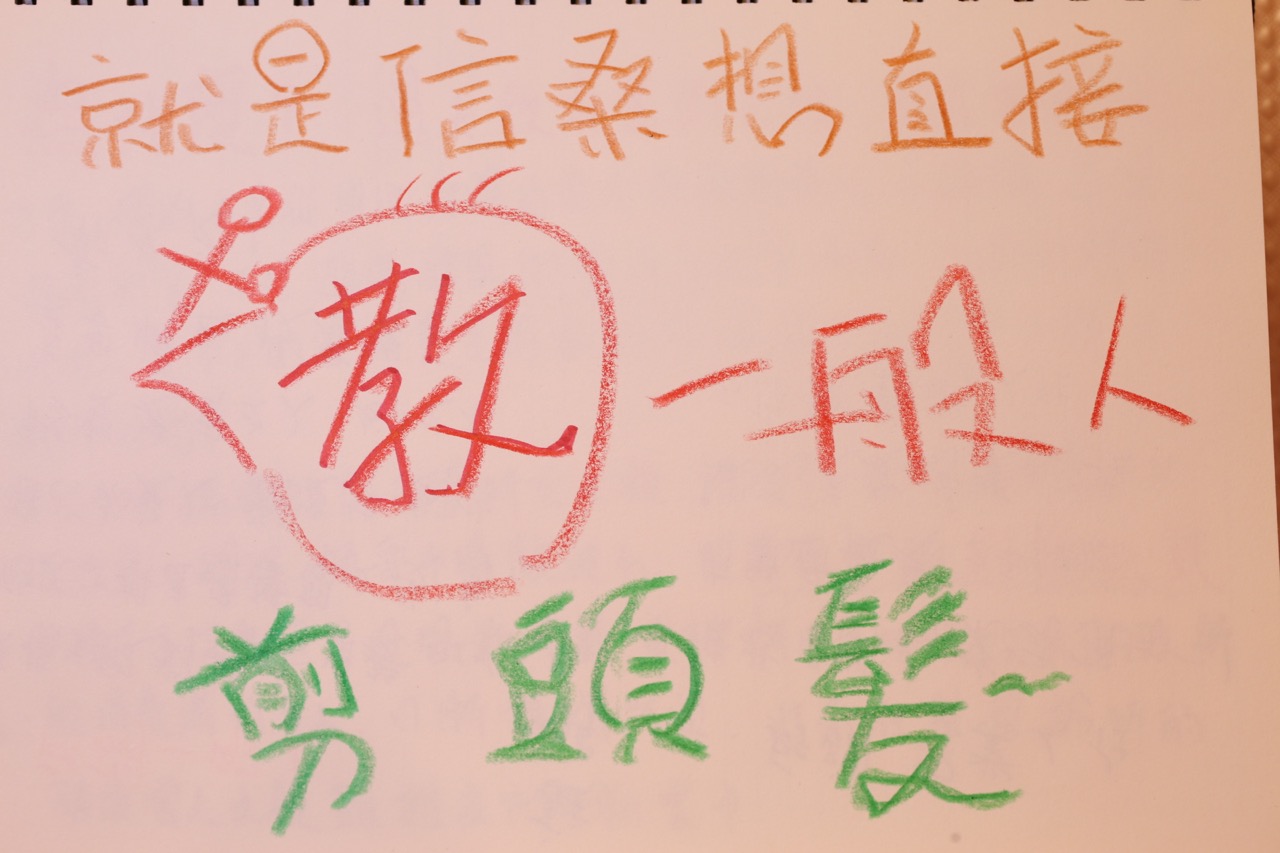 就是信桑想直接
教一般人
剪頭髮~